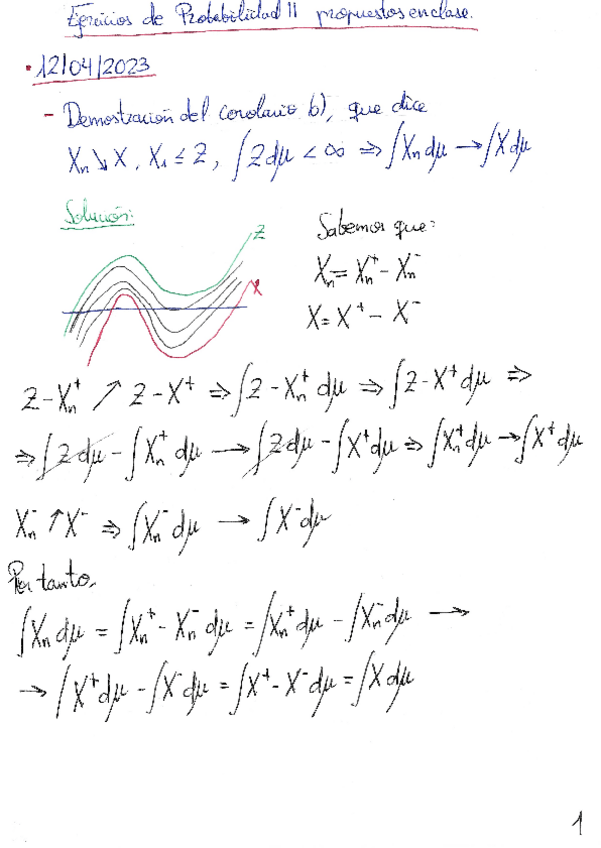 Ejercicios de Probabilidad II propuestos en clase.
• 12/04/2023
- Demostración del corolario b), que dice
Xₙ ↘ X, X₁ ≤ Z, ∫Z dμ < ∞ ⇒ ∫Xₙ dμ → ∫X dμ
Solución:
Z
X
Sabemos que:
Xₙ = Xₙ⁺ - Xₙ⁻
X = X⁺ - X⁻
Z - Xₙ⁺ ↗ Z - X⁺ ⇒ ∫Z - Xₙ⁺ dμ ⇒ ∫Z - X⁺ dμ ⇒
⇒ ∫Z dμ - ∫Xₙ⁺ dμ → ∫Z dμ - ∫X⁺ dμ ⇒ ∫Xₙ⁺ dμ → ∫X⁺ dμ
Xₙ⁻ ↑ X⁻ ⇒ ∫Xₙ⁻ dμ → ∫X⁻ dμ
Por tanto,
∫Xₙ dμ = ∫Xₙ⁺ - Xₙ⁻ dμ = ∫Xₙ⁺ dμ - ∫Xₙ⁻ dμ →
→ ∫X⁺ dμ - ∫X⁻ dμ = ∫X⁺ - X⁻ dμ = ∫X dμ
1